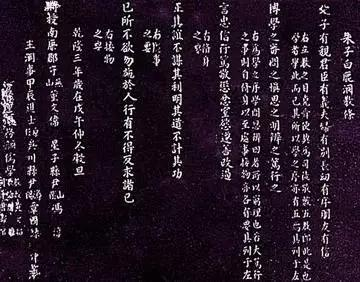 朱子白鹿洞教條
父子有親君臣有義夫婦有別長幼有序朋友有信
右五教之目堯舜使契為司徒敬敷五教即此是也
學者學此而已其所以學之之序亦有五焉其別于左
博學之審問之慎思之明辨之篤行之
右為學之序學問思辨四者所以窮理也若夫篤行
之事則自修身以至處事接物亦各有要其別于左
言忠信行篤敬懲忿窒慾遷善改過
右修身
之要
正其誼不謀其利明其道不計其功
右處事
之要
己所不欲勿施於人行有不得反求諸己
右接物
之要
乾隆三年歲在戊午仲冬穀旦
授南康郡守 董文偉 星子縣尹
主洞事甲辰進士